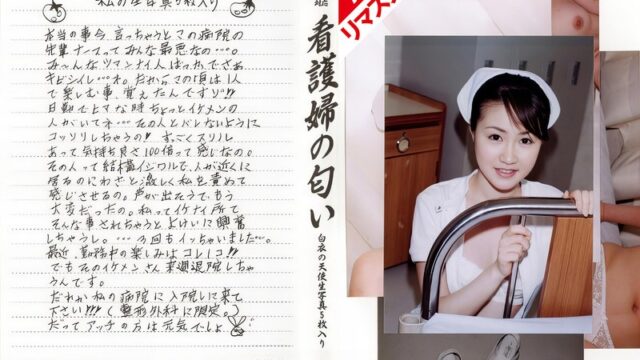 本当の事今、言っちゃうとこの病院の
先輩ナースってみんな最悪なの…。
み〜んなツマンナイ人ばっかでさぁ
キビシイし…ネ。だからこの頃は1人
で楽しむ事、覚えたんですヨ!!
日勤でヒマな時ちょっとイケメンの
人がいてネ…その人とバレないように
コッソリしちゃうの!! すっごくスリル
あって気持ち良さ100倍って感じなの。
その人って結構イジワルで、人が近くに
居るのにわざと激しく私を責めて
感じさせるの。声が出そうで、もう
大変だったの。私ってイケナイ所で
そんな事されちゃうとよけいに興奮
しちゃうし。…3回もイッちゃいました…。
最近、勤務中の楽しみはコレ1コ!!
でもそのイケメンさん来週退院しちゃ
うんです。
だれか私の病院に入院しに来て
下さい!!!(整形外科に限定。)
だってアッチの方は元気でしょ
看護婦の匂い
白衣の天使生写真5枚入り
リマスタ